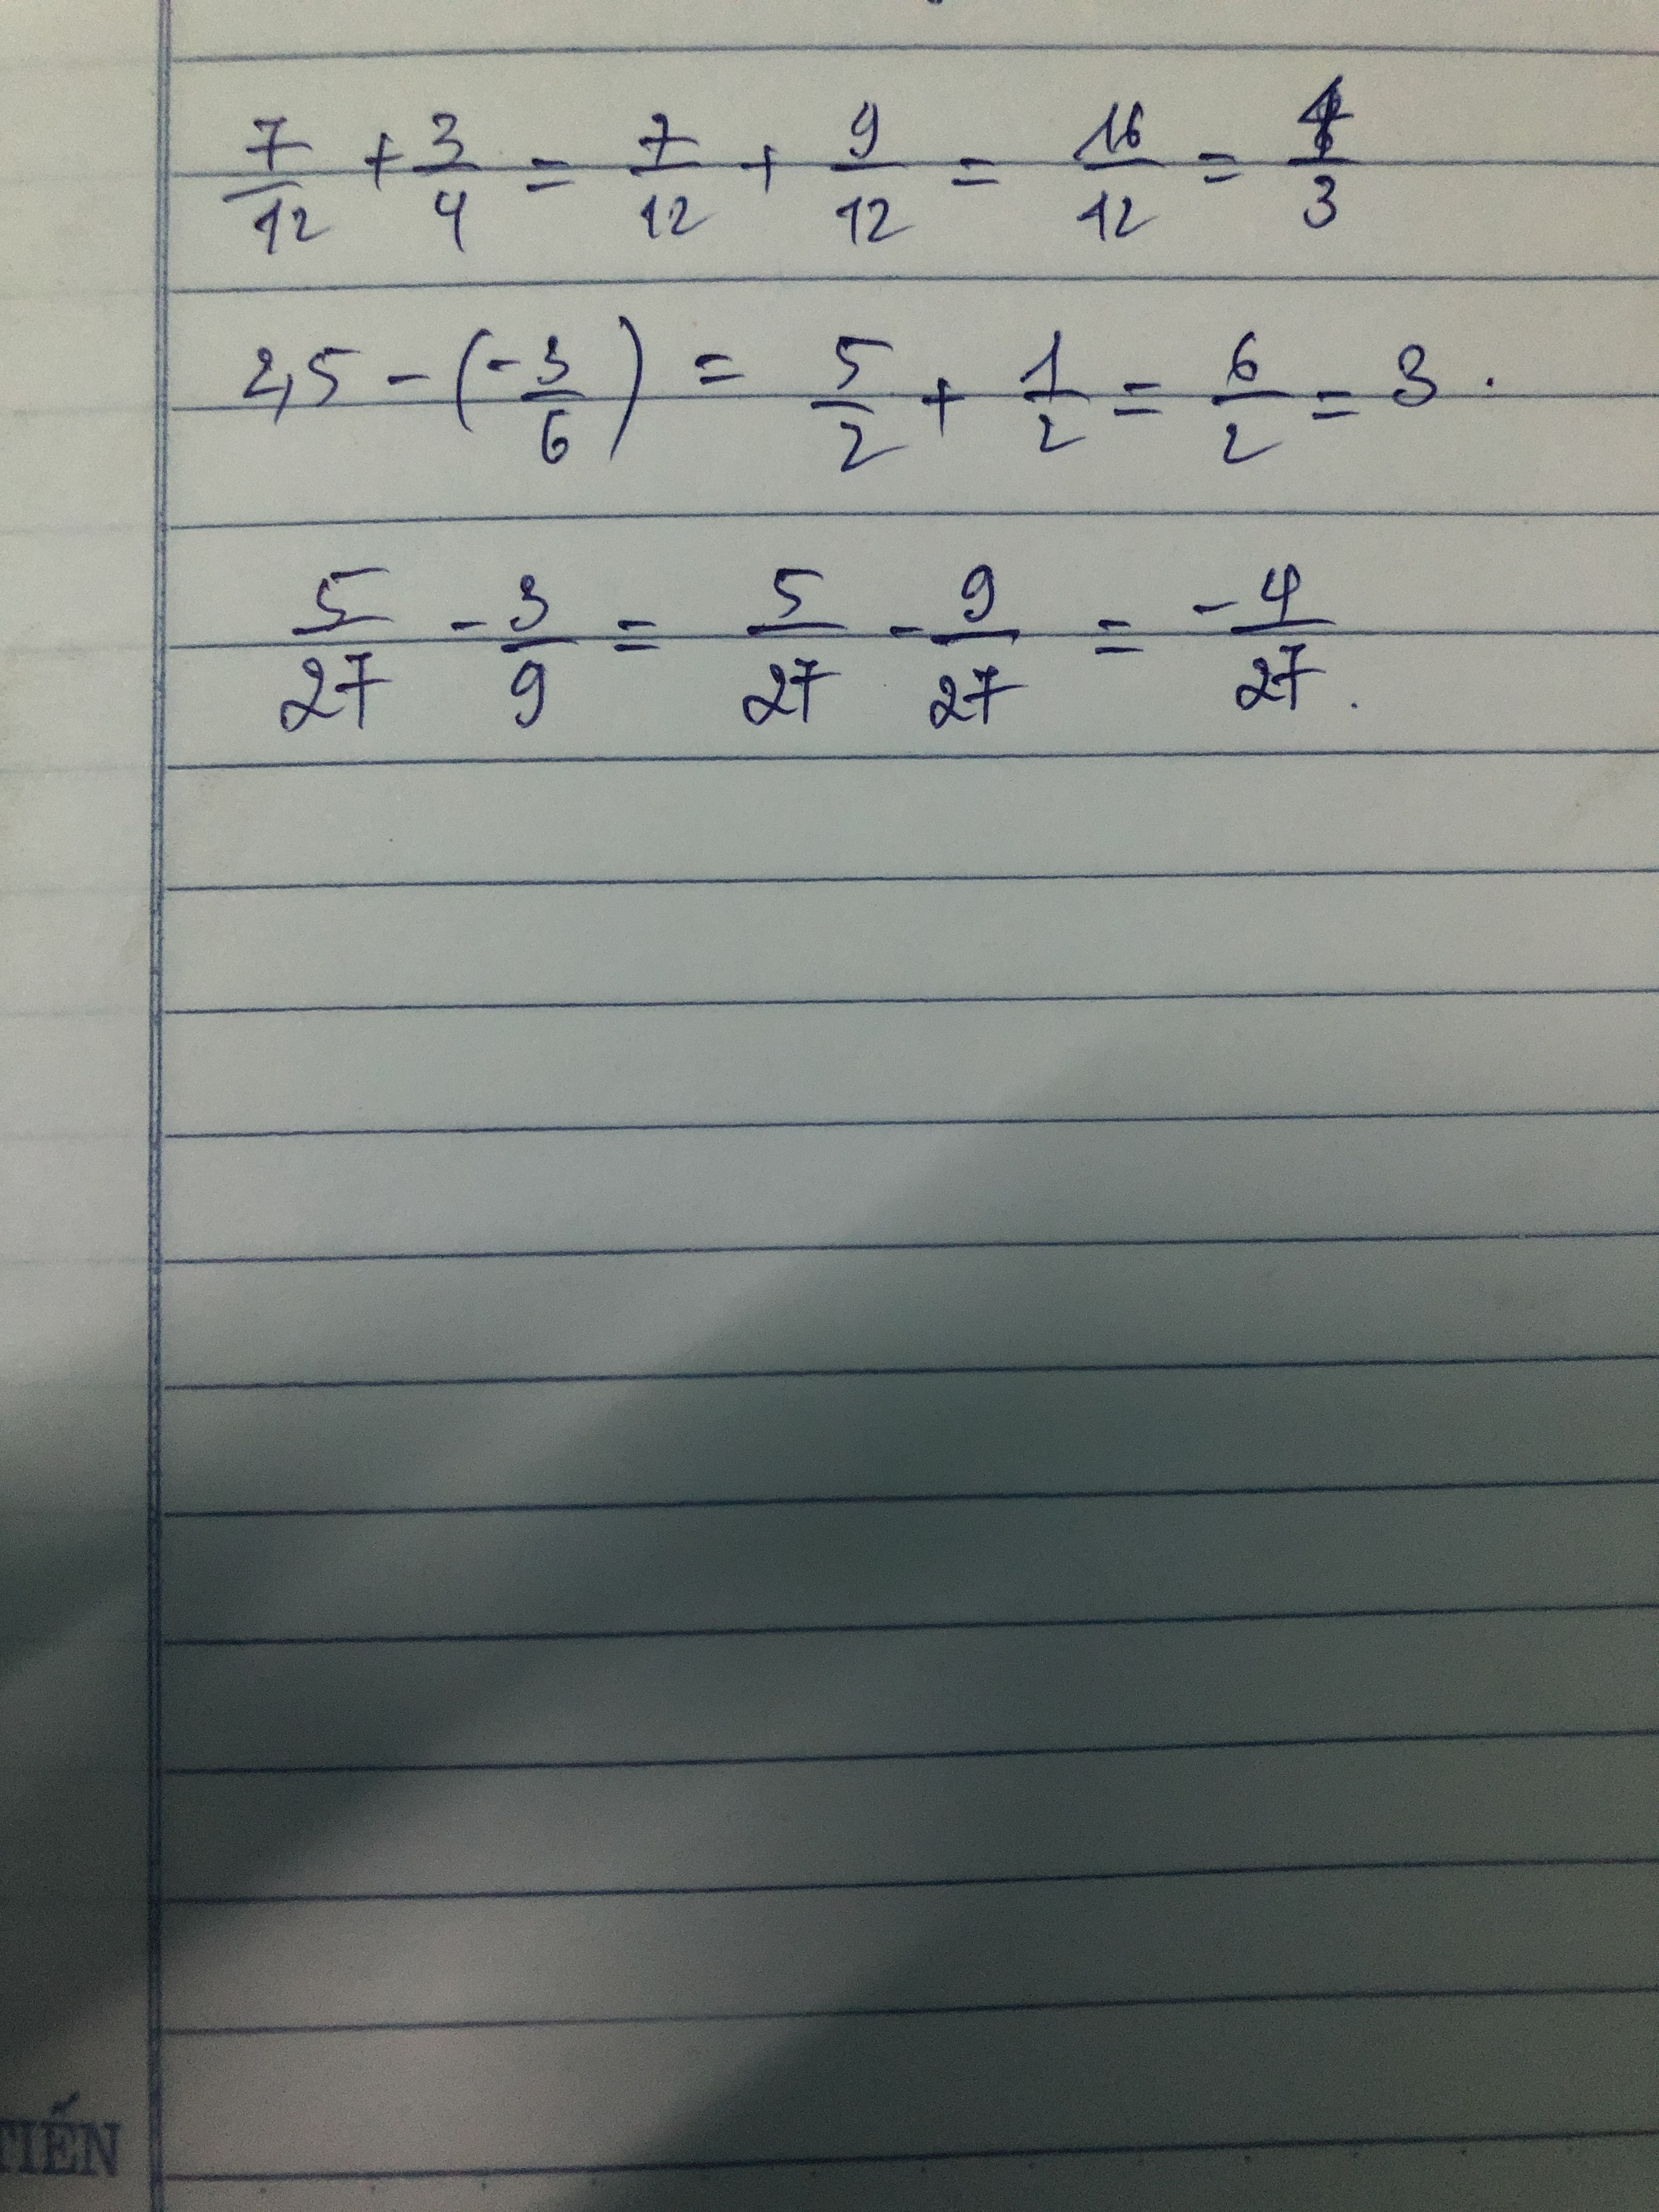 7/12 + 3/4 = 7/12 + 9/12 = 16/12 = 4/3
2,5 - (-3/6) = 5/2 + 1/2 = 6/2 = 3.
5/27 - 3/9 = 5/27 - 9/27 = -4/27.
TIẾN